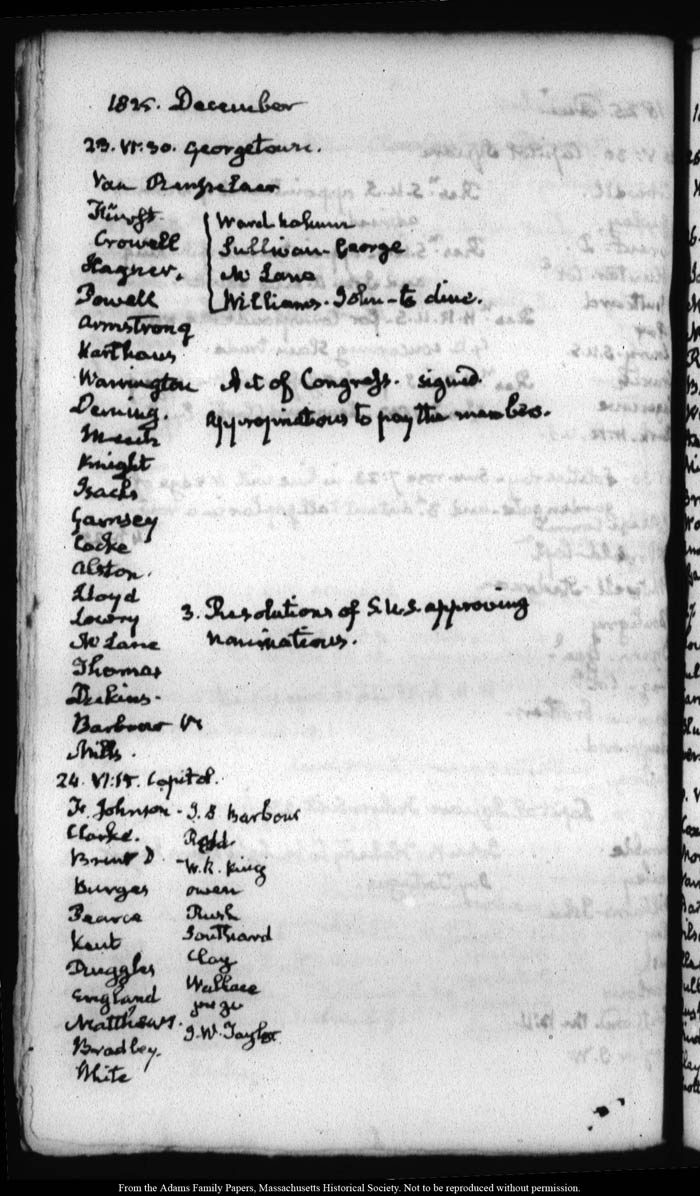 1825. December
23. VI.30. Georgetown.
Van Rensselaer
Fürst
Crowell
Hagner.
Powell
Armstrong
Karthaus
Warrington
Deming.
Meech
Knight
Isacks
Garnsey
Cocke
Alston.
Lloyd
Lowry
McLane
Thomas
Deskins.
Barbour
Mills.
Ward
Sullivan George
McLane
Williams. John - to dine.
Act of Congress. signed
appropriations to pay the members.
3. Resolutions of S.U.S. approving
nominations.
24. VI:15. Capitol.
Fr. Johnson - J. S. Barbour
Clarke. Reed.
Brent D. - W. R. King
Burges Owen
Pearce Rush
Kent Southard
Ruggles Clay
England Wallace
Matthews.
Bradley. J. W. Taylor
White
From the Adams Family Papers, Massachusetts Historical Society. Not to be reproduced without permission.